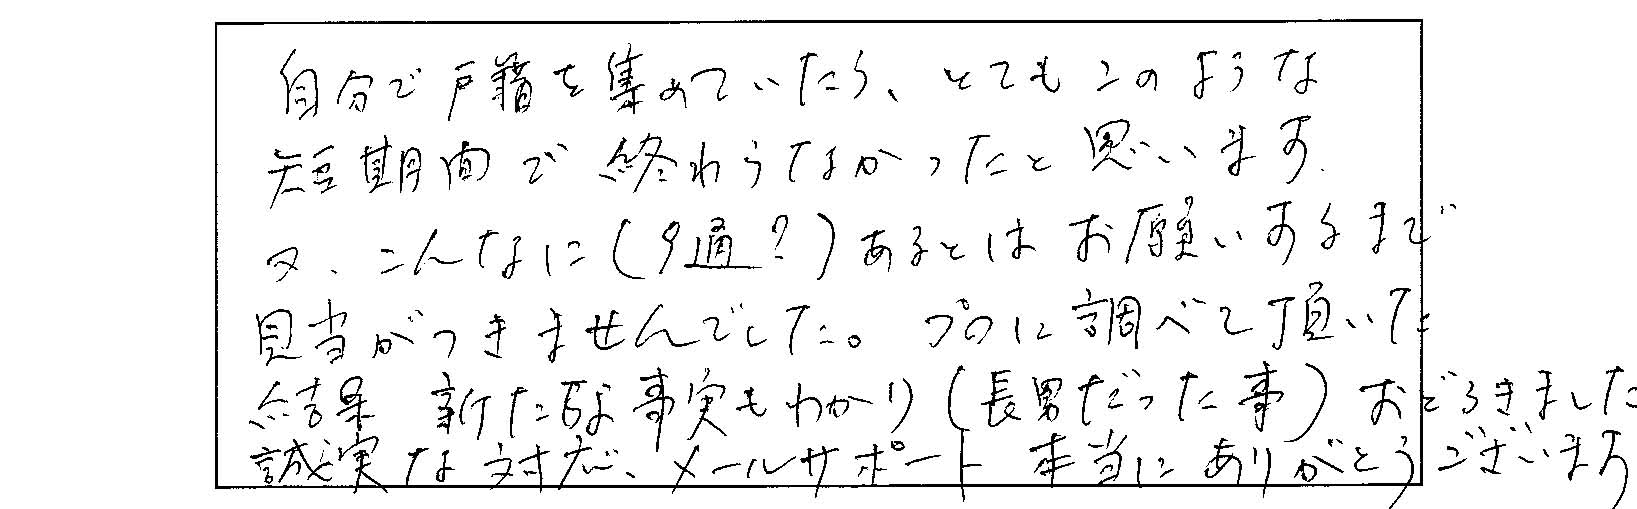 自分で戸籍を集めていたら、とてもこのような
短期間で終わらなかったと思います.
又、こんなに(9通?)あるとは お願いするまで
見当がつきませんでした。プロに調べて頂いた
結果 新たな事実もわかり(長男だった事)おどろきました
誠実な対応、メールサポート 本当にありがとうございます